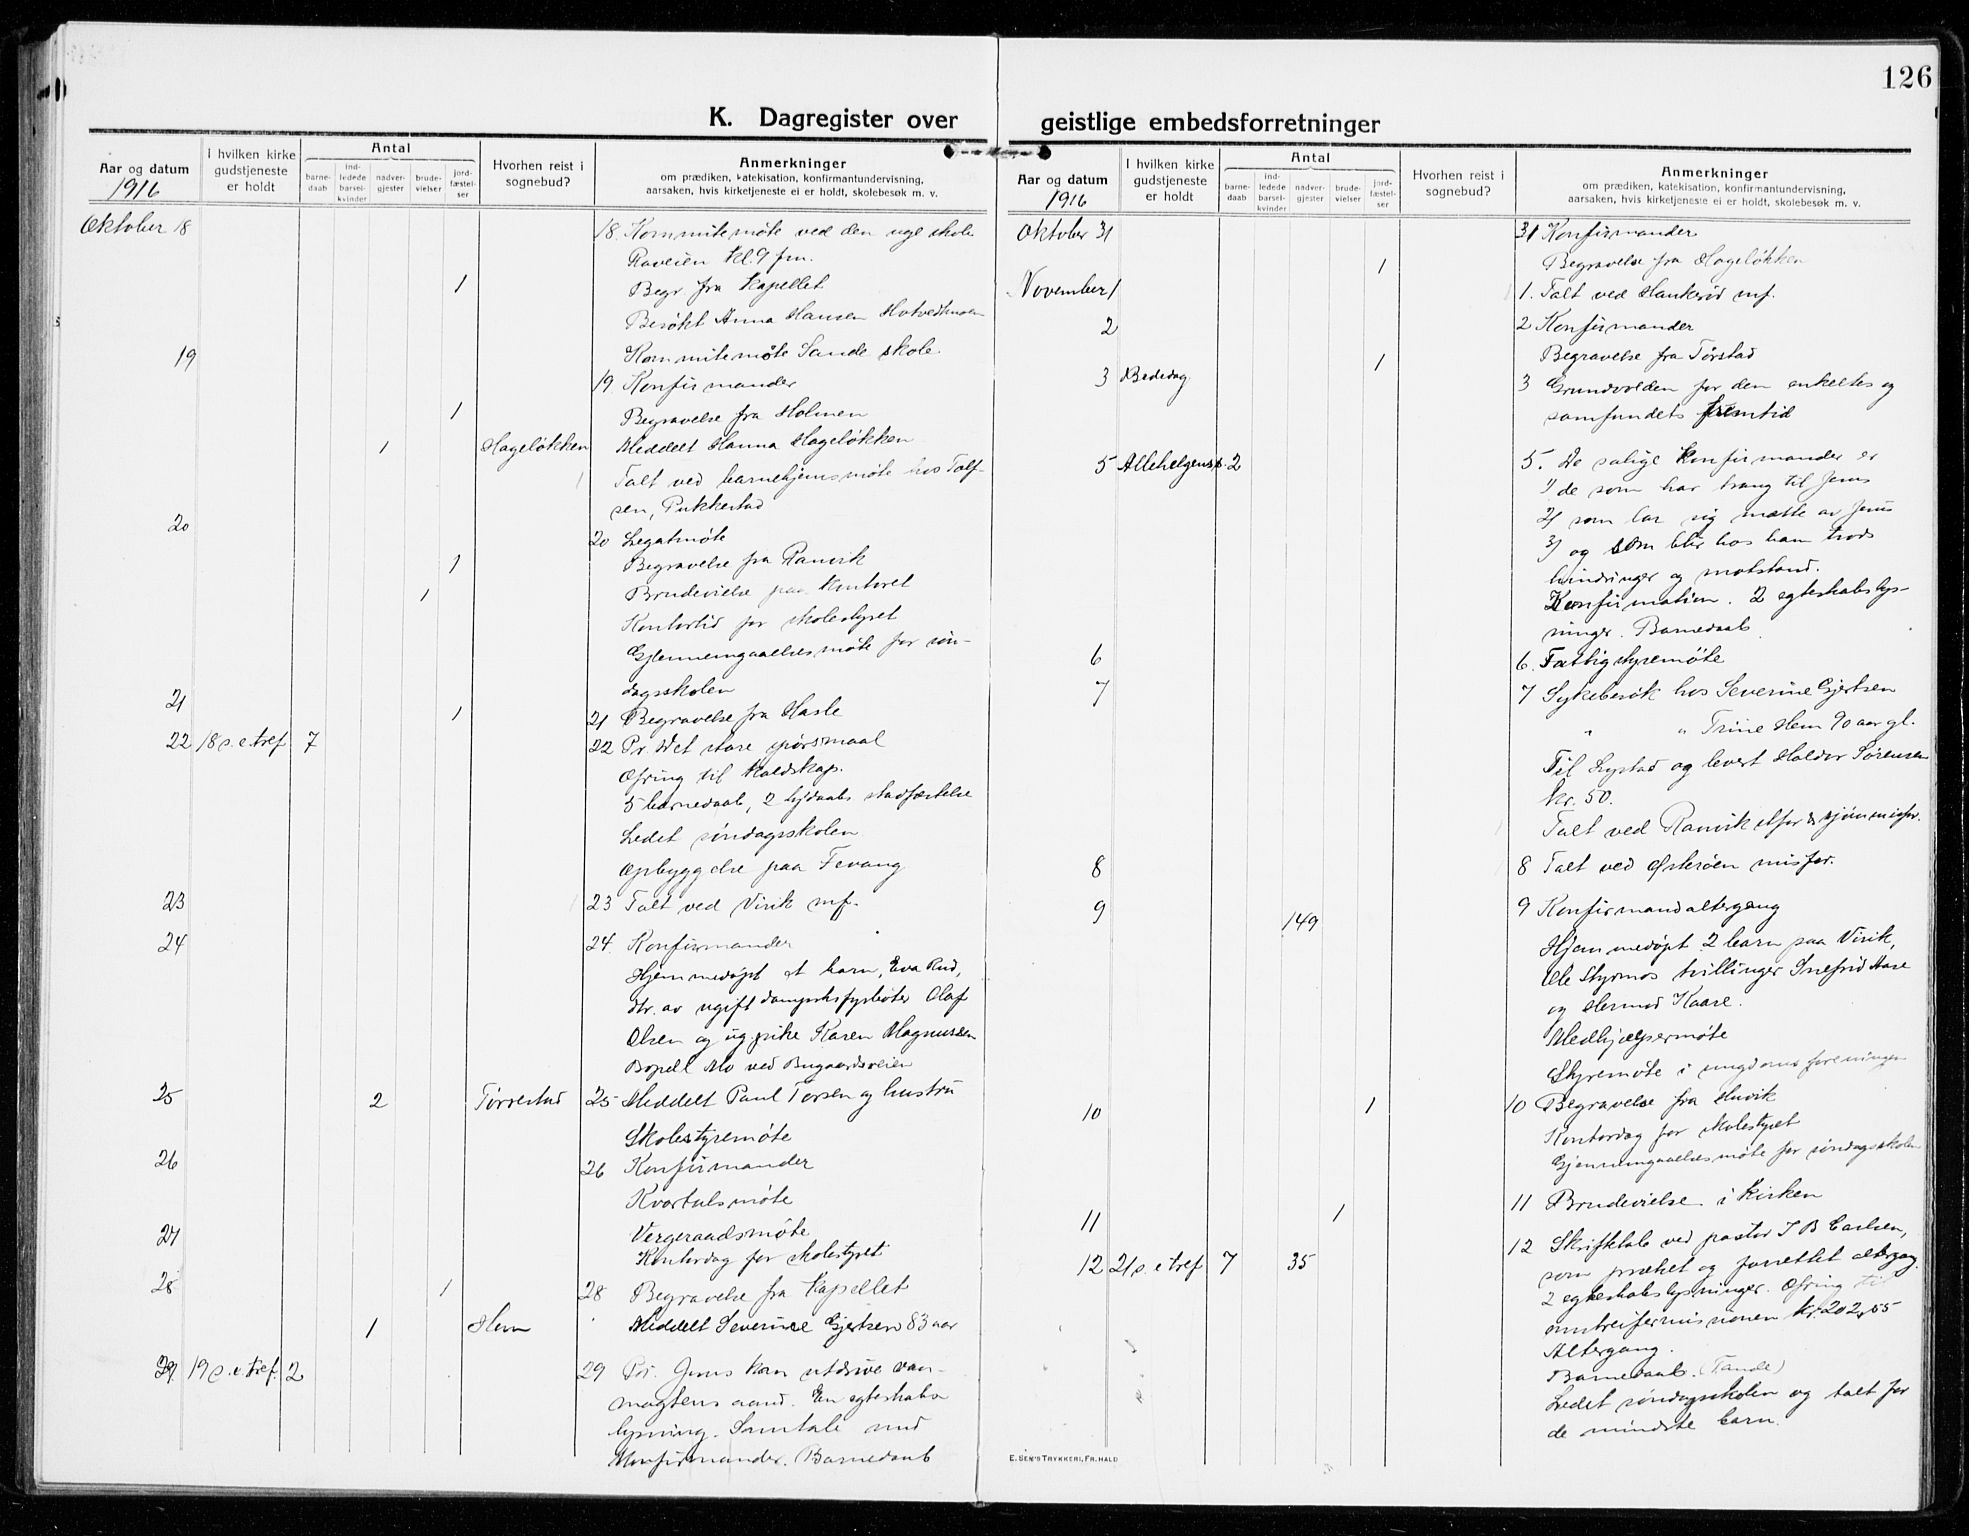 126
K. Dagregister over geistlige embedsforretninger
Aar og datum
1916
I hvilken kirke gudstjeneste er holdt
Antal
barne-daab
ind-ledede barsel-kvinder
nadver-gjester
brude-vielser
jord-fæstel-ser
Hvorhen reist i sognebud?
Anmerkninger
om prædiken, katekisation, konfirmantundervisning,
aarsaken, hvis kirketjeneste ei er holdt, skolebesøk m. v.
Oktober 18
18. Kommitemøte ved den nye skole
Raveien kl. 9 fm.
1 Begr. fra Kapellet
Besøkt Anna Hansen
Kommitemøte Sande skole.
19
19. Konfirmander
1 Begravelse fra Holmen
1 Hageløkken Meddelt Hanna Hageløkken
Talt ved barnehjemsmøte hos Tolf-
sen, Pukkestad
20
20 Legatmøte
1 Begravelse fra Ranvik
1 Brudevielse paa kontoret
Kontortid for skolestyret
Gjennemgaaelsesmøte for søn-
dagsskolen
21 1 21 Begravelse fra Hasle
22 18 s. e. tref. 7 22 Pr. Det store spørsmaal
Ofring til
5 barnedaab, 2 hjdaabs stadfæstelse
Ledet søndagsskolen
Opbyggelse paa Fevang
23 23 Talt ved Virik mf.
24 24. Konfirmander
Hjemmedøpt et barn, Eva Rud,
dtr. av ugift dampsksfyrbøter Olaf
Olsen og ug. pike Karen Magnussen
Bopæl Mo ved Bugaardsveien
25 2 Tørrestad 25 Meddelt Paul Torsen og hustru
Skolestyremøte
26 26 Konfirmander
Kvartalsmøte
27 Vergeraadsmøte
Kontordag for skolestyret
28 1 28 Begravelse fra Kapellet
1 Hem Meddelt Severine Gjertsen 83 aar
29 19 s. e. tref. 2 29 Pr. Jesus kan utdrive van-
magtens aand. En egteskabs
lysning. Samtale med
Konfirmander. Barnedaab
Aar og datum
1916
I hvilken kirke gudstjeneste er holdt
Antal
barne-daab
ind-ledede barsel-kvinder
nadver-gjester
brude-vielser
jord-fæstel-ser
Hvorhen reist i sognebud?
Anmerkninger
om prædiken, katekisation, konfirmantundervisning,
aarsaken, hvis kirketjeneste ei er holdt, skolebesøk m. v.
Oktober 31 31 Konfirmander
1 Begravelse fra Hageløkken
November 1 1. Talt ved Haukerød mf.
2 2 Konfirmander
1 Begravelse fra Tørstad
3 Bededag. 3 Grundvolden for den enkeltes og
samfundets fremtid
5 Allehelgens 2 5. De salige konfirmander er
1) de som har trang til Jesus
2) som lar sig mætte av Jesus
3) og som blir hos ham trods
hindringer og motstand.
Konfirmation. 2 egteskabslys-
ninger. Barnedaab
6 6. Fattigstyremøte
7 7 Sykebesøk hos Severine Gjertsen
" " Trine Hem 90 aar gl.
Til Lystad og levert Haldor Sørensen
kr. 50.
Talt ved Ranvik
8 8 Talt ved Østerøen misfor.
9 149 9 Konfirmandaltergang
Hjemmedøpt 2 barn paa Virik,
Ole Styrmos tvillinger Snefrid Aase
og Hermod Kaare.
Medhjælpermøte
Styremøte i ungdomsforeningen
10 1 10 Begravelse fra Huvik
Kontordag for skolestyret
Gjennemgaaelsesmøte for søndagsskolen
11 1 11 Brudevielse i kirken
12 21 s. e. tref 7 35 12 Skriftetale ved pastor I B Carlsen,
som præket og forrettet altergang
2 egteskabslysninger. Ofring til
omstreifermisionen kr. 202,55
Altergang.
Barnedaab. (Tande)
Ledet søndagsskolen og talt for
de mindste barn.
E. SEM'S TRYKKERI, FR.HALD